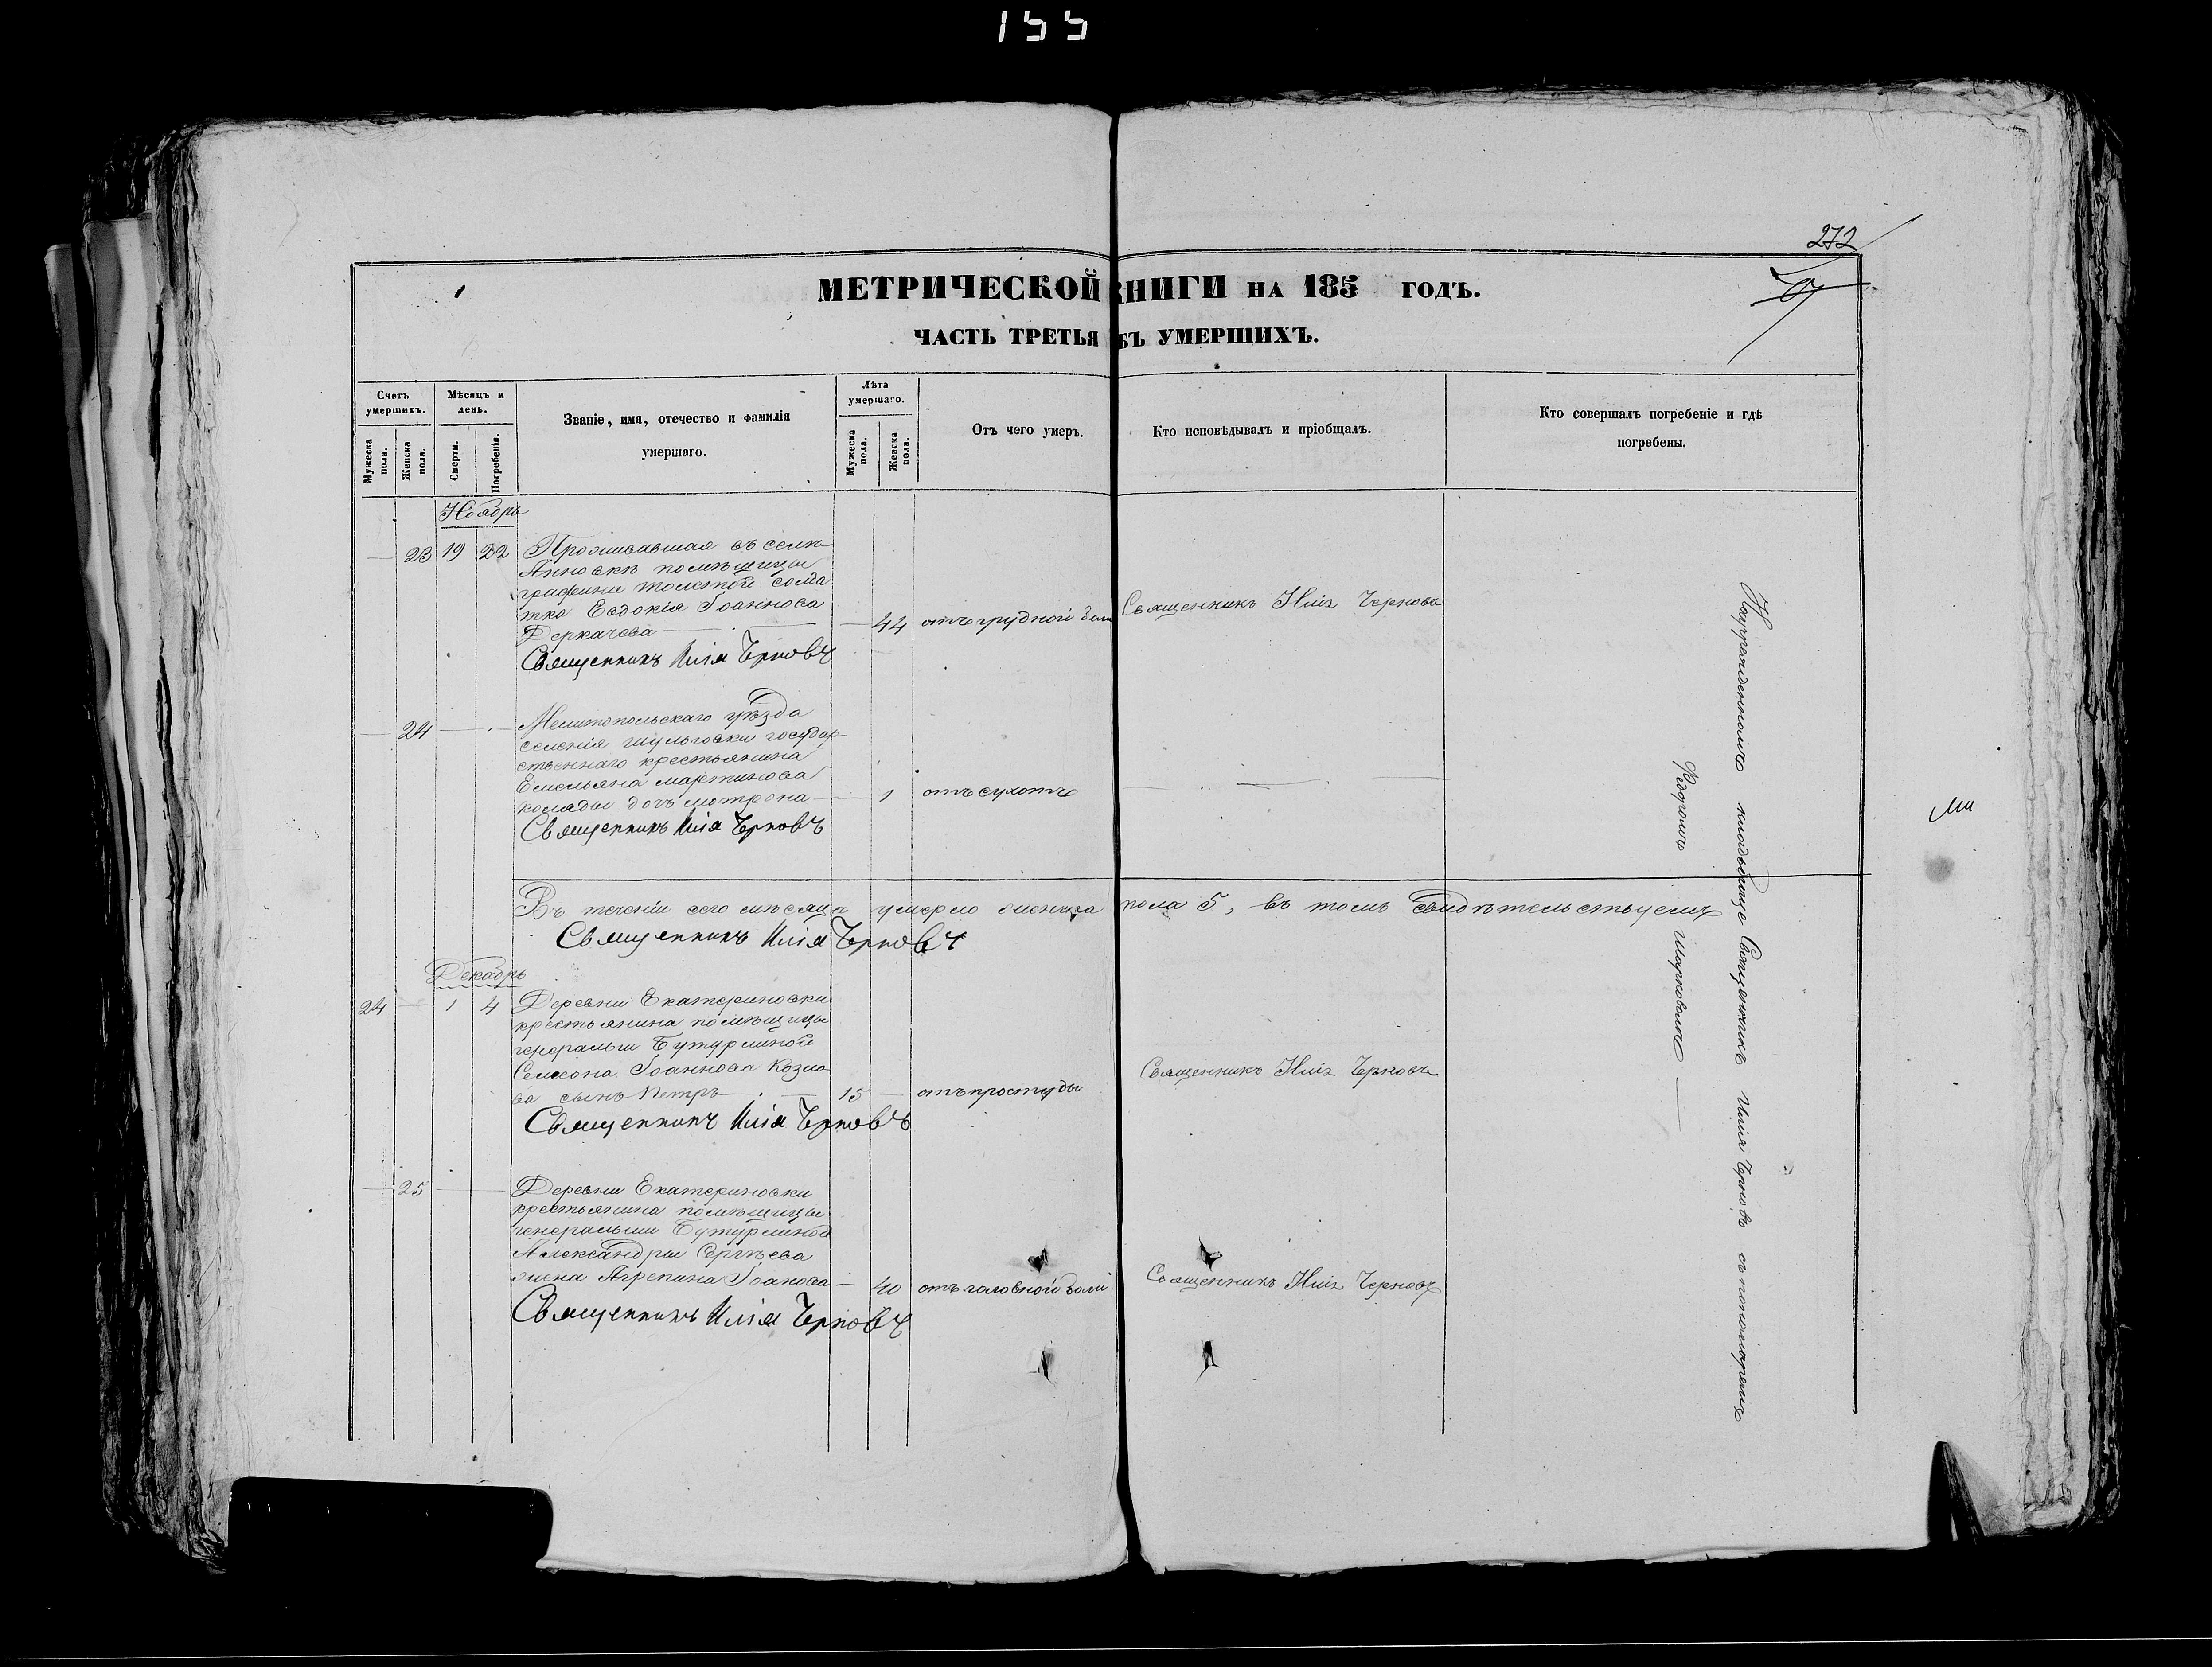 155
272
МЕТРИЧЕСКОЙ КНИГИ НА 185 ГОДЪ.
ЧАСТЬ ТРЕТЬЯ ОБЪ УМЕРШИХЪ.
Счетъ умершихъ.
Мужеска пола.
Женска пола.
Мѣсяцъ и день.
Смерти.
Погребенія.
Званіе, имя, отечество и фамилія
умершаго.
Лѣта умершаго.
Мужеска пола.
Женска пола.
Отъ чего умеръ.
Кто исповѣдывалъ и пріобщалъ.
Кто совершалъ погребеніе и гдѣ
погребены.
Ноябрь
23 19 22 Проживавшая въ селѣ
Анновкѣ помѣщицы
графини Толстой солда
тка Евдокія Іоаннова
Деркачева 44 отъ грудной боли Священникъ Илія Черновъ
Священникъ Илія Черновъ
24 Мелитопольскаго уѣзда
селенія Шульговки государ
ственнаго крестьянина
Емельяна Мартинова
Коляды дочь Мотрона 1 отъ сухотъ
Священникъ Илія Черновъ
Въ теченіи сего мѣсяца умерло женска пола 5, въ томъ свидѣтельствуемъ
Священникъ Илія Черновъ
Декабрь
24 1 4 Деревни Екатериновки
крестьянина помѣщицы
генеральши Бутурлиной
Семеона Іоаннова Козло
ва сынъ Петръ 15 отъ простуды Священникъ Илія Черновъ
Священникъ Илія Черновъ
25 Деревни Екатериновки
крестьянина помѣщицы
генеральши Бутурлиной
Александры Сергѣева
жена Агрепина Іоанова 40 отъ головной боли Священникъ Илія Черновъ
Священникъ Илія Черновъ
кладбище Священникъ Илія Черновъ съ пономаремъ